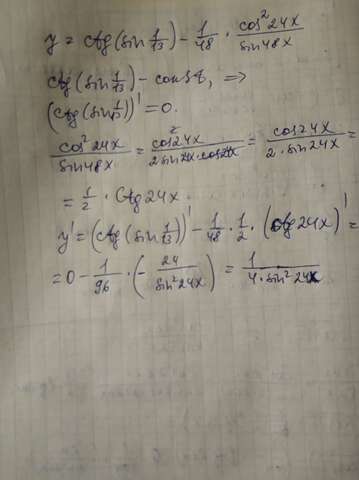 y = ctg(sin 1/13) - 1/48 · cos²24x/sin48x
ctg(sin 1/13) - const, =>
(ctg(sin 1/13))' = 0.
cos²24x/sin48x = cos²24x/2sin24x·cos24x = cos24x/2·sin24x =
= 1/2 · ctg24x
y' = (ctg(sin 1/13))' - 1/48 · 1/2 · (ctg24x)' =
= 0 - 1/96 · (- 24/sin²24x) = 1/4·sin²24x